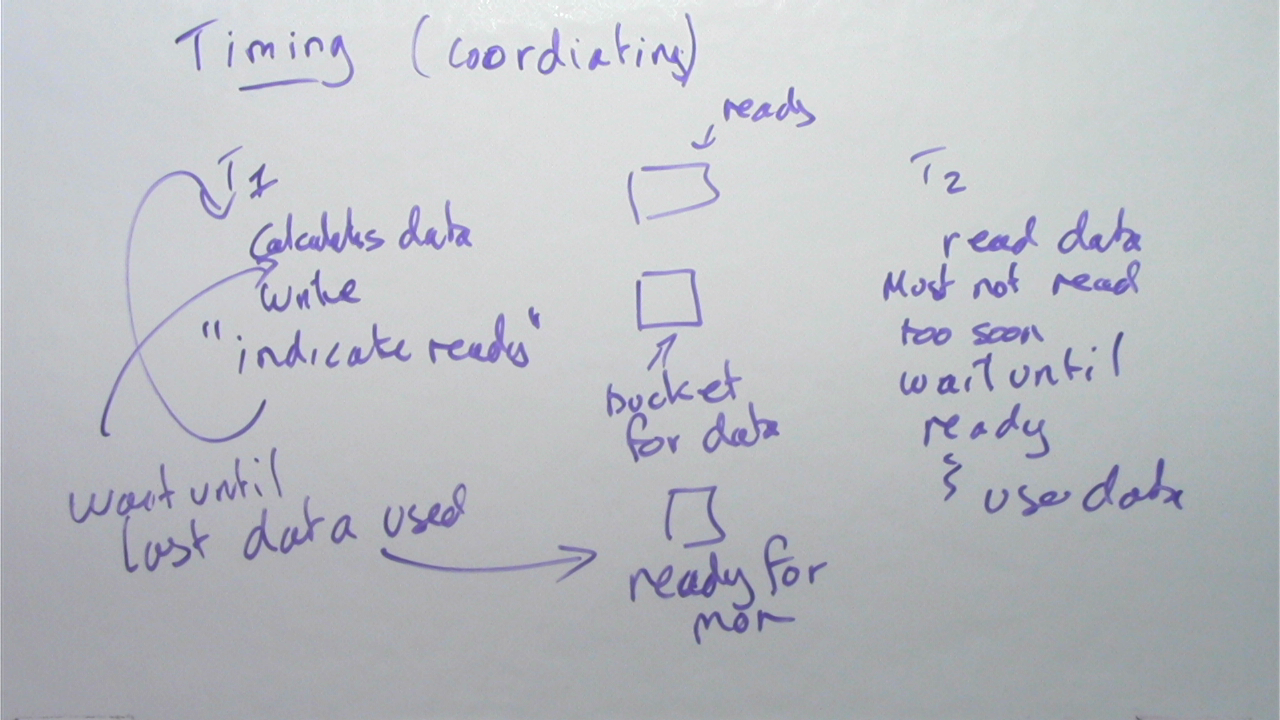 Timing (coordiating)
ready
T1
Calculates data
Write
"indicate ready"
wait until
last data used
bucket
for data
ready for
mor
T2
read data
Must not read
too soon
wait until
ready
use data